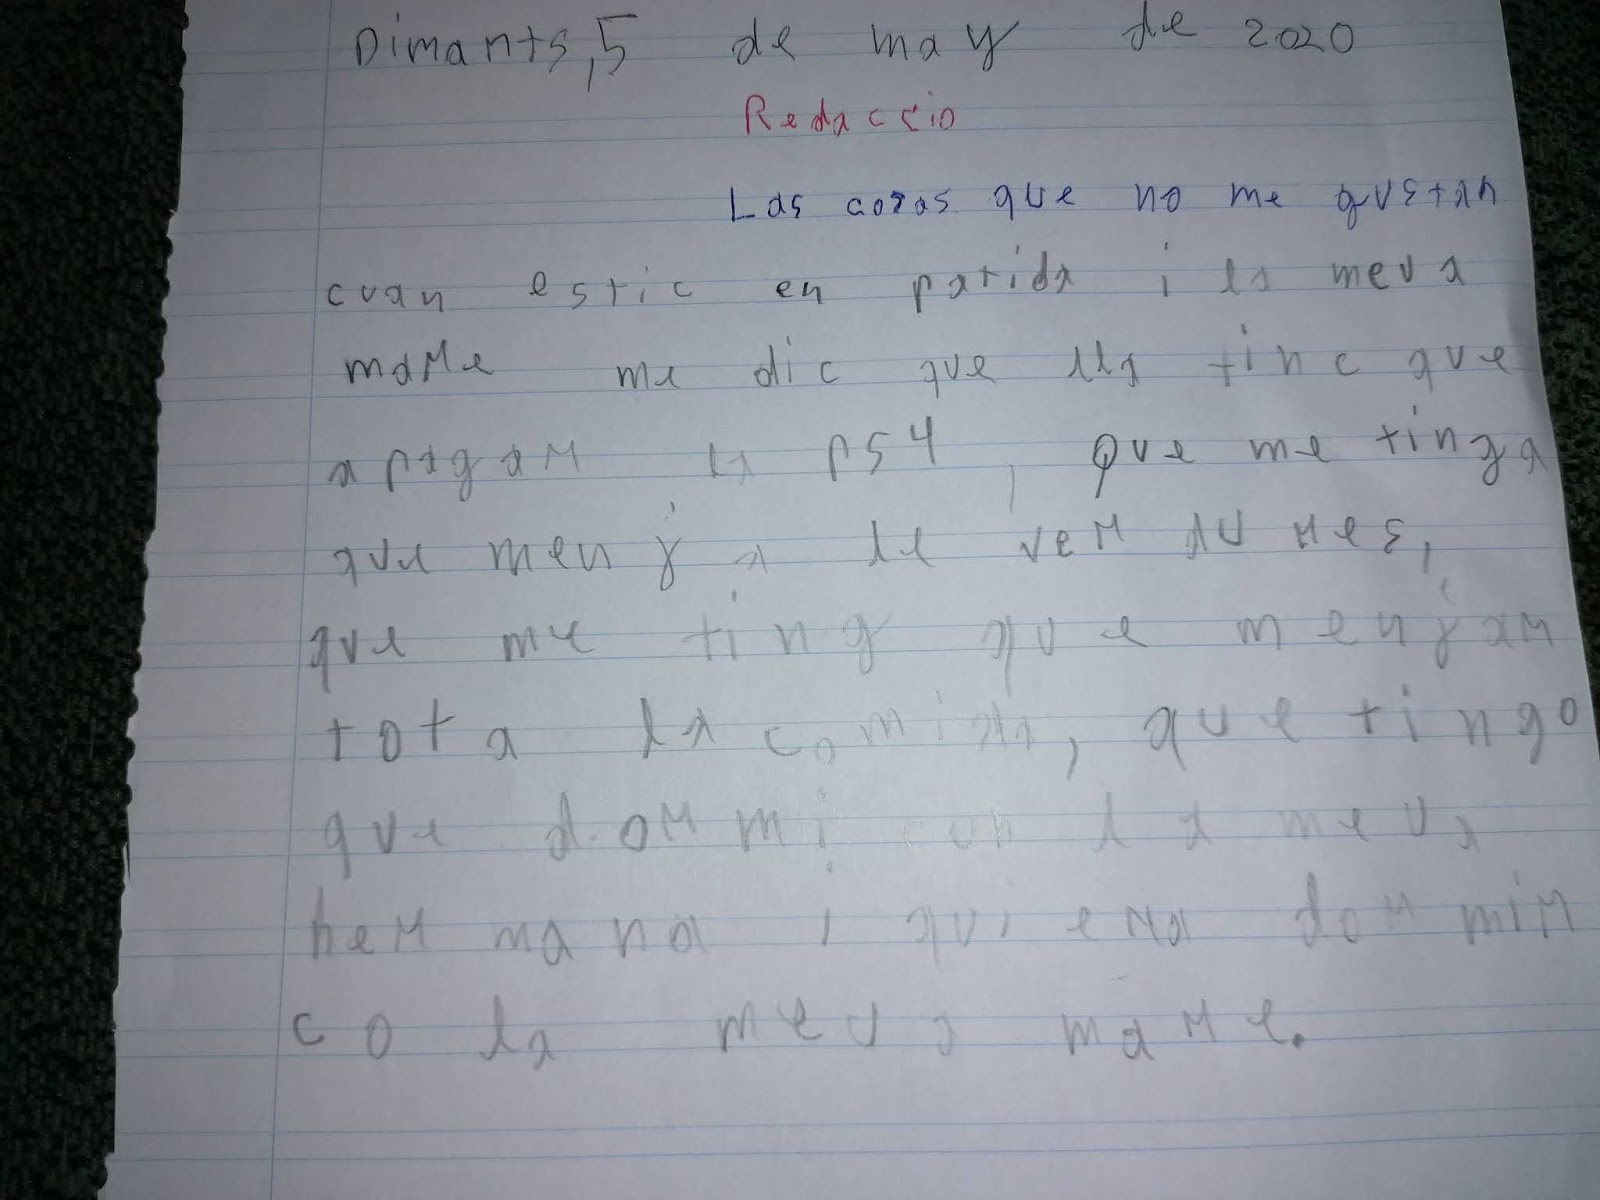 Dimants, 5 de may de 2020
Redaccio
Las cosas que no me gustan
cuan estic en patida i la meva
mare me dic que lla tinc que
apagar la PS4, que me tinga
que menja le verdures,
que me ting que menjar
tota la comida, que tingo
que dormi cun la meva
hermana i quiera dormir
co la meva mare.